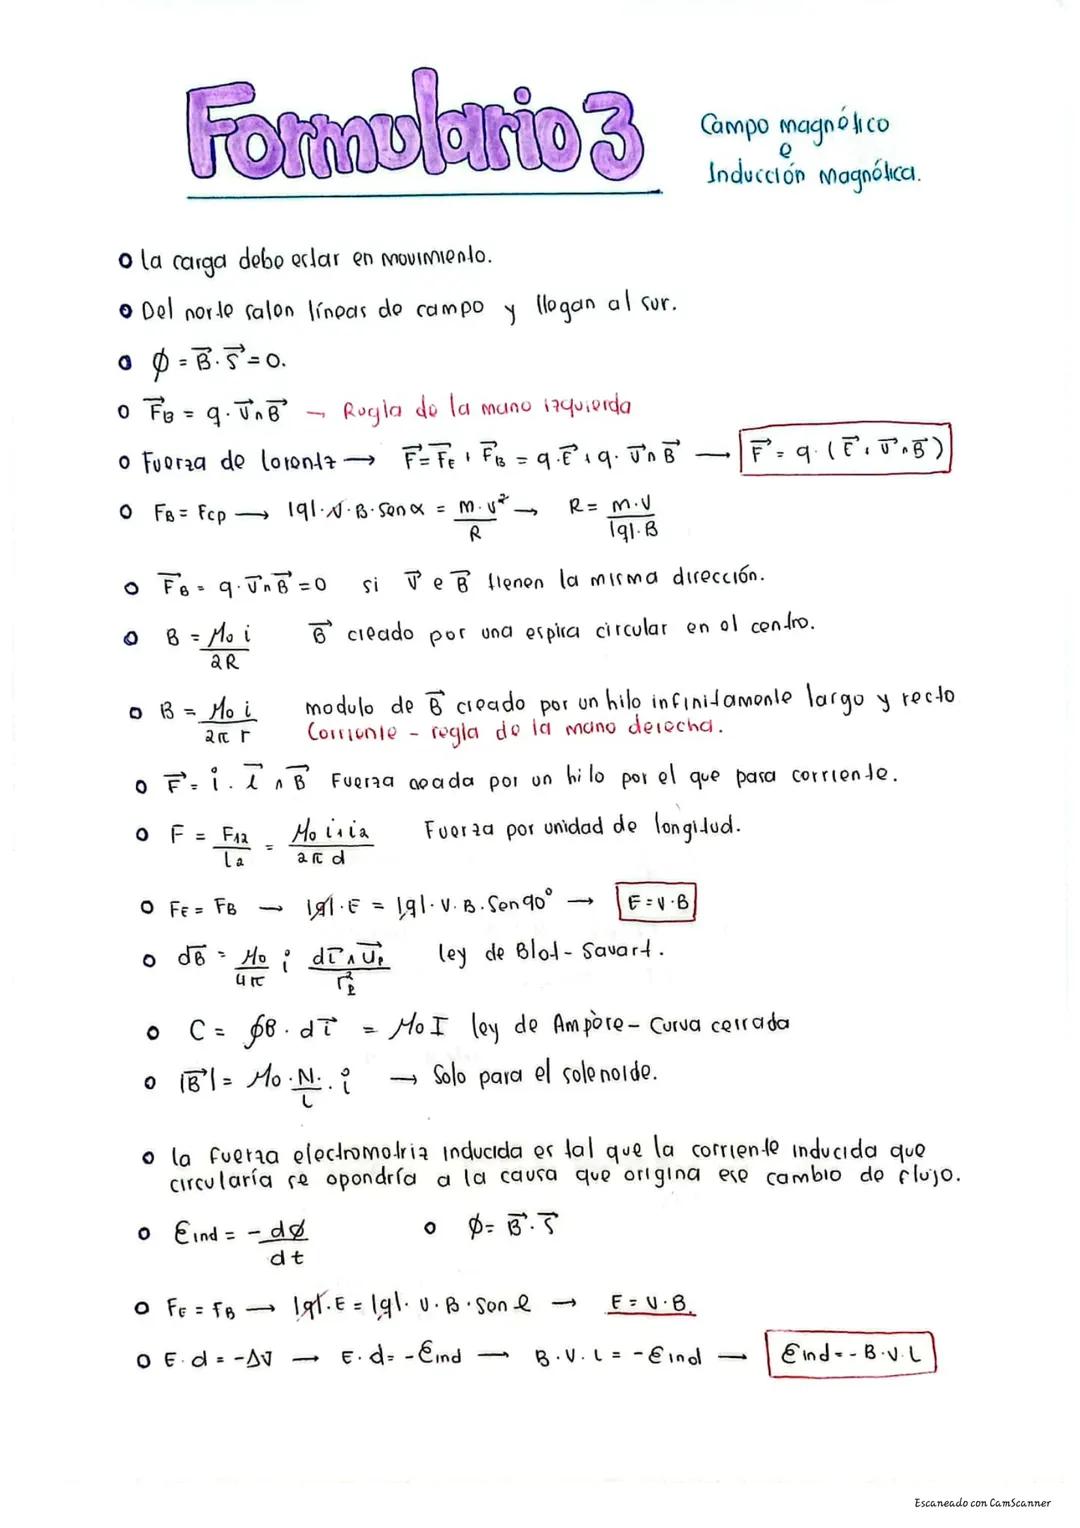 Formulario 3
Campo magnético
e
Inducción Magnética.
o La carga debe estar en movimiento.
o Del norte salen líneas de campo y llegan al sur.
o ϕ = B⃗ · S⃗ = 0.
o F⃗B = q · v⃗ ∧ B⃗ → Regla de la mano izquierda
o Fuerza de Lorentz → F⃗ = F⃗E + F⃗B = q · E⃗ + q · v⃗ ∧ B⃗ → F⃗ = q · (E⃗ + v⃗ ∧ B⃗)
o FB = Fcp → |q| · v · B · Sen α = m · v² / R → R = m · v / |q| · B
o F⃗B = q · v⃗ ∧ B⃗ = 0 si v⃗ e B⃗ tienen la misma dirección.
o B = μ0 i / 2R B⃗ creado por una espira circular en el centro.
o B = μ0 i / 2π r modulo de B⃗ creado por un hilo infinitamente largo y recto
Corriente - regla de la mano derecha.
o F⃗ = i · l⃗ ∧ B⃗ Fuerza por un hilo por el que pasa corriente.
o F = F12 / l2 = μ0 i1 i2 / 2π d Fuerza por unidad de longitud.
o FE = FB → |q| · E = |q| · v · B · Sen 90° → E = v · B
o dB⃗ = μ0 / 4π i dl⃗ ∧ u⃗r / r² ley de Biot - Savart.
o C = ∮B · dl⃗ = μ0 I ley de Ampère - Curva cerrada
o |B⃗| = μ0 · N / L · i → Solo para el solenoide.
o la fuerza electromotriz inducida es tal que la corriente inducida que
circularía se opondría a la causa que origina ese cambio de flujo.
o Ɛind = - dϕ / dt o ϕ = B⃗ · S⃗
o FE = FB → |q| · E = |q| · v · B · Sen → E = v · B.
o E · d = -ΔV → E · d = -Ɛind → B · v · L = -Ɛind → Ɛind = - B · v · L
Escaneado con CamScanner